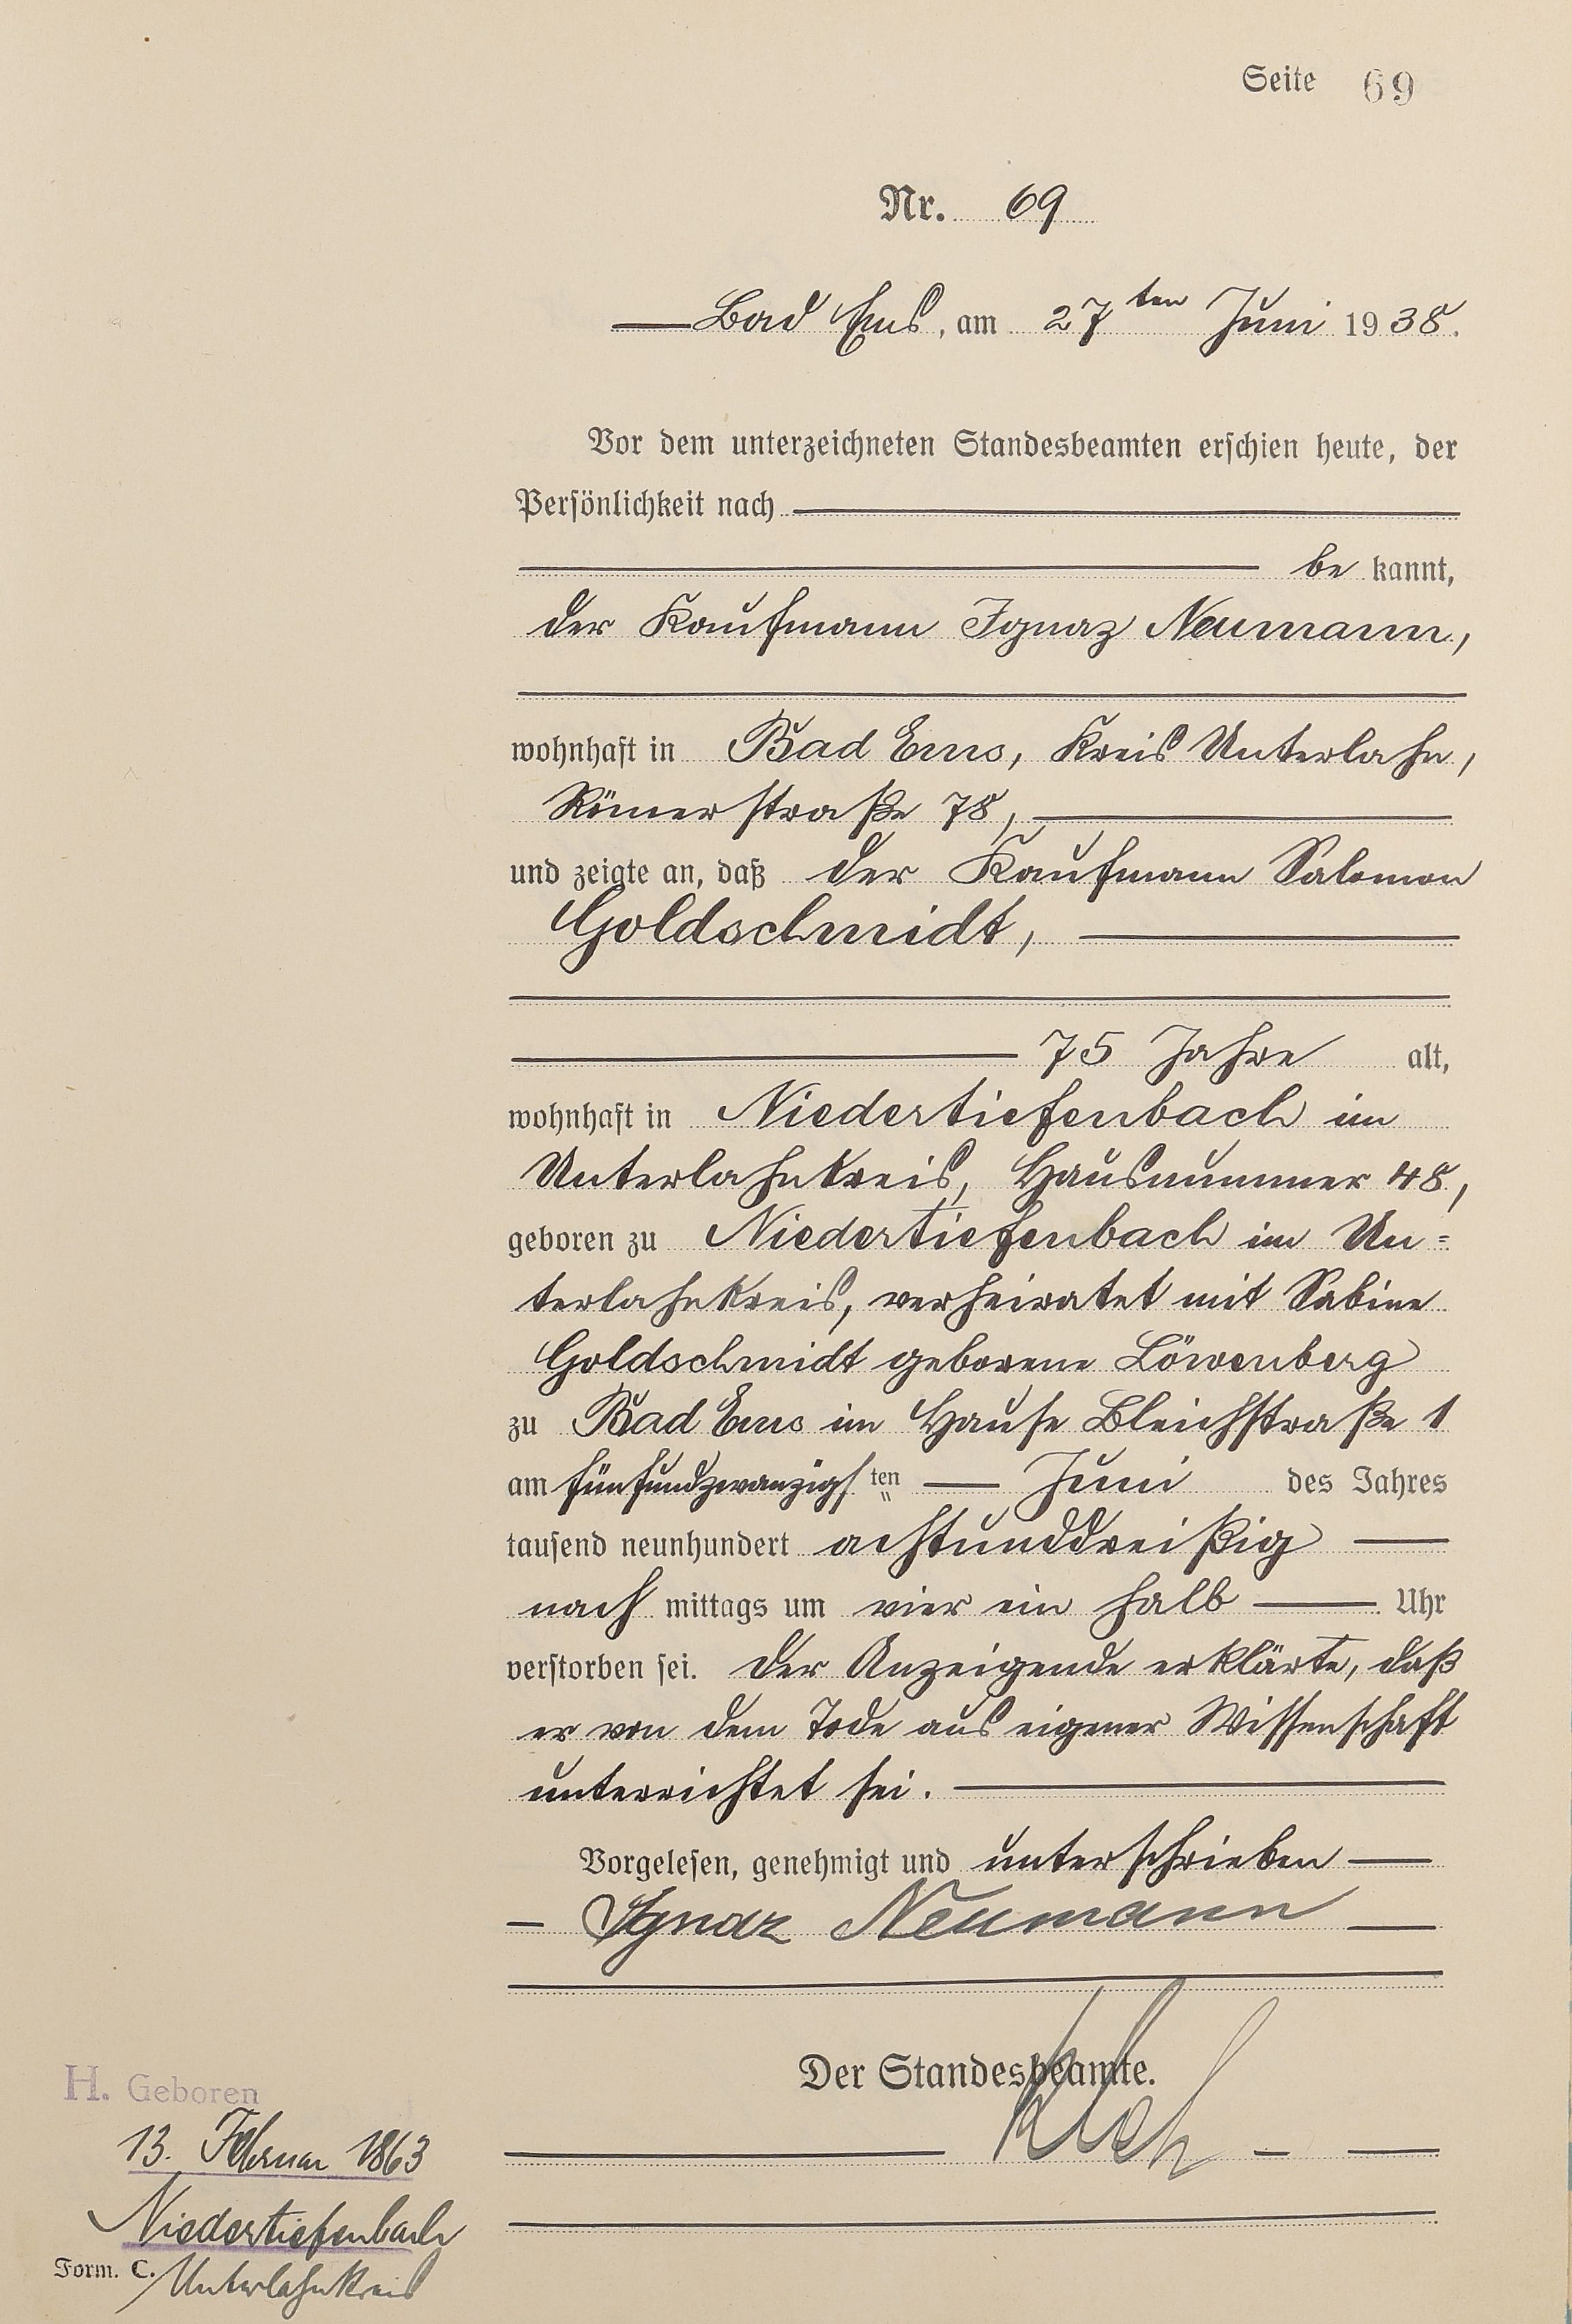 Seite 69
Nr. 69
Bad Ems, am 27ten Juni 1938.
Vor dem unterzeichneten Standesbeamten erschien heute, der
Persönlichkeit nach
be kannt,
der Kaufmann Ignaz Neumann,
wohnhaft in Bad Ems, Kreis Unterlahn,
Römerstraße 78,
und zeigte an, daß der Kaufmann Salomon
Goldschmidt,
75 Jahre alt,
wohnhaft in Niedertiefenbach im
Unterlahnkreis, Hausnummer 48,
geboren zu Niedertiefenbach im Un=
terlahnkreis, verheiratet mit Sabine
Goldschmidt geborene Löwenberg
zu Bad Ems im Hause Bleichstraße 1
am fünfundzwanzigsten Juni des Jahres
tausend neunhundert achtunddreißig
nach mittags um vier ein halb Uhr
verstorben sei. Der Anzeigende erklärte, daß
er von dem Tode aus eigener Wissenschaft
unterrichtet sei.
Vorgelesen, genehmigt und unterschrieben
Ignaz Neumann
Der Standesbeamte.
H. Geboren
13. Februar 1863
Niedertiefenbach
Form. C. Unterlahnkreis